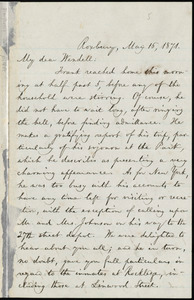 Roxbury, May 15, 1871.
My dear Wendell:
Frank reached home this morn-
ing at half past 5, before any of the
household were stirring. Of course, he
did not have to wait long, after ringing
the bell, before finding admittance. He
makes a gratifying report of his trip, par-
ticularly of his sojourn at the Point,
which he describes as presenting a very
charming appearance. As for New York,
he was too busy with his accounts to
have any time left for visiting or recre-
ation, with the exception of calling upon
Mr. and Mrs. Johnson on his way to the
27th street depot. We are delighted to
hear about you all; and he in turn,
no doubt, gave you full particulars in
regard to the inmates at Rockledge, in-
cluding those at Linwood Street.